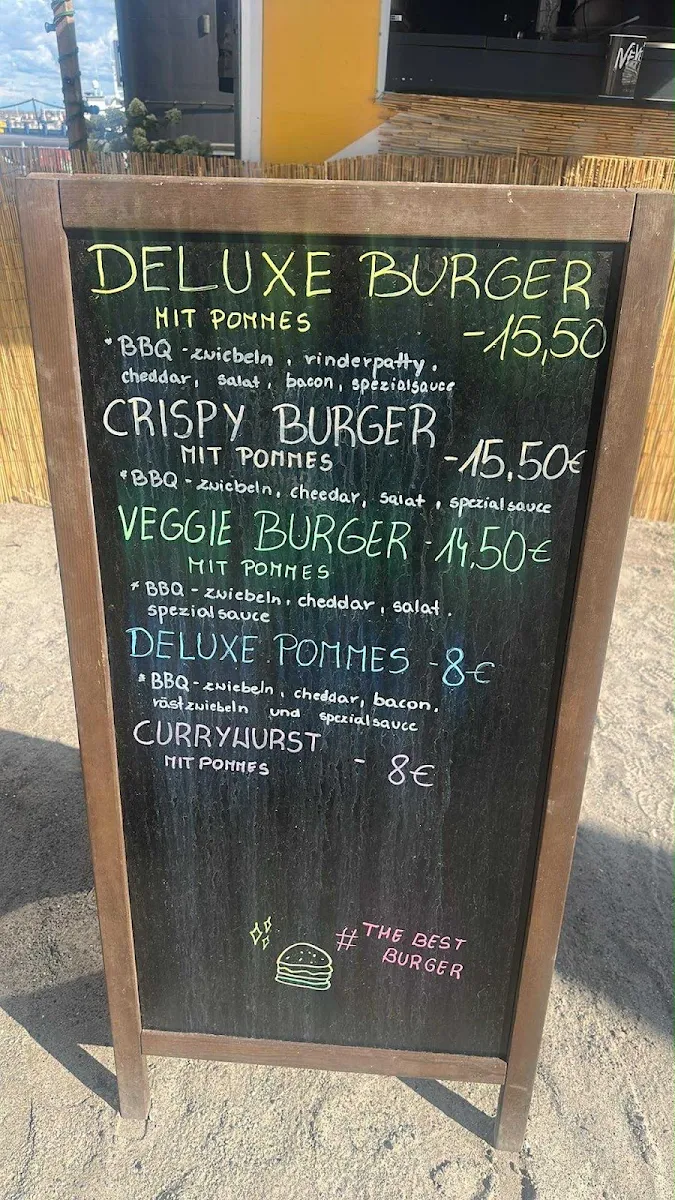 DELUXE BURGER
MIT POMMES
-15,50
*BBQ-zwiebeln, rinderpatty,
cheddar, salat, bacon, spezialsauce
CRISPY BURGER
MIT POMMES
-15,50€
*BBQ-zwiebeln, cheedar, salat, spezialsauce
VEGGIE BURGER -14,50€
MIT POMMES
*BBQ-zwiebeln, cheddar, salat,
spezialsauce
DELUXE POMMES -8€
*BBQ-zwiebeln, cheddar, bacon,
röstzwiebeln und spezialsauce
CURRYWURST
MIT POMMES
- 8€
# THE BEST
BURGER